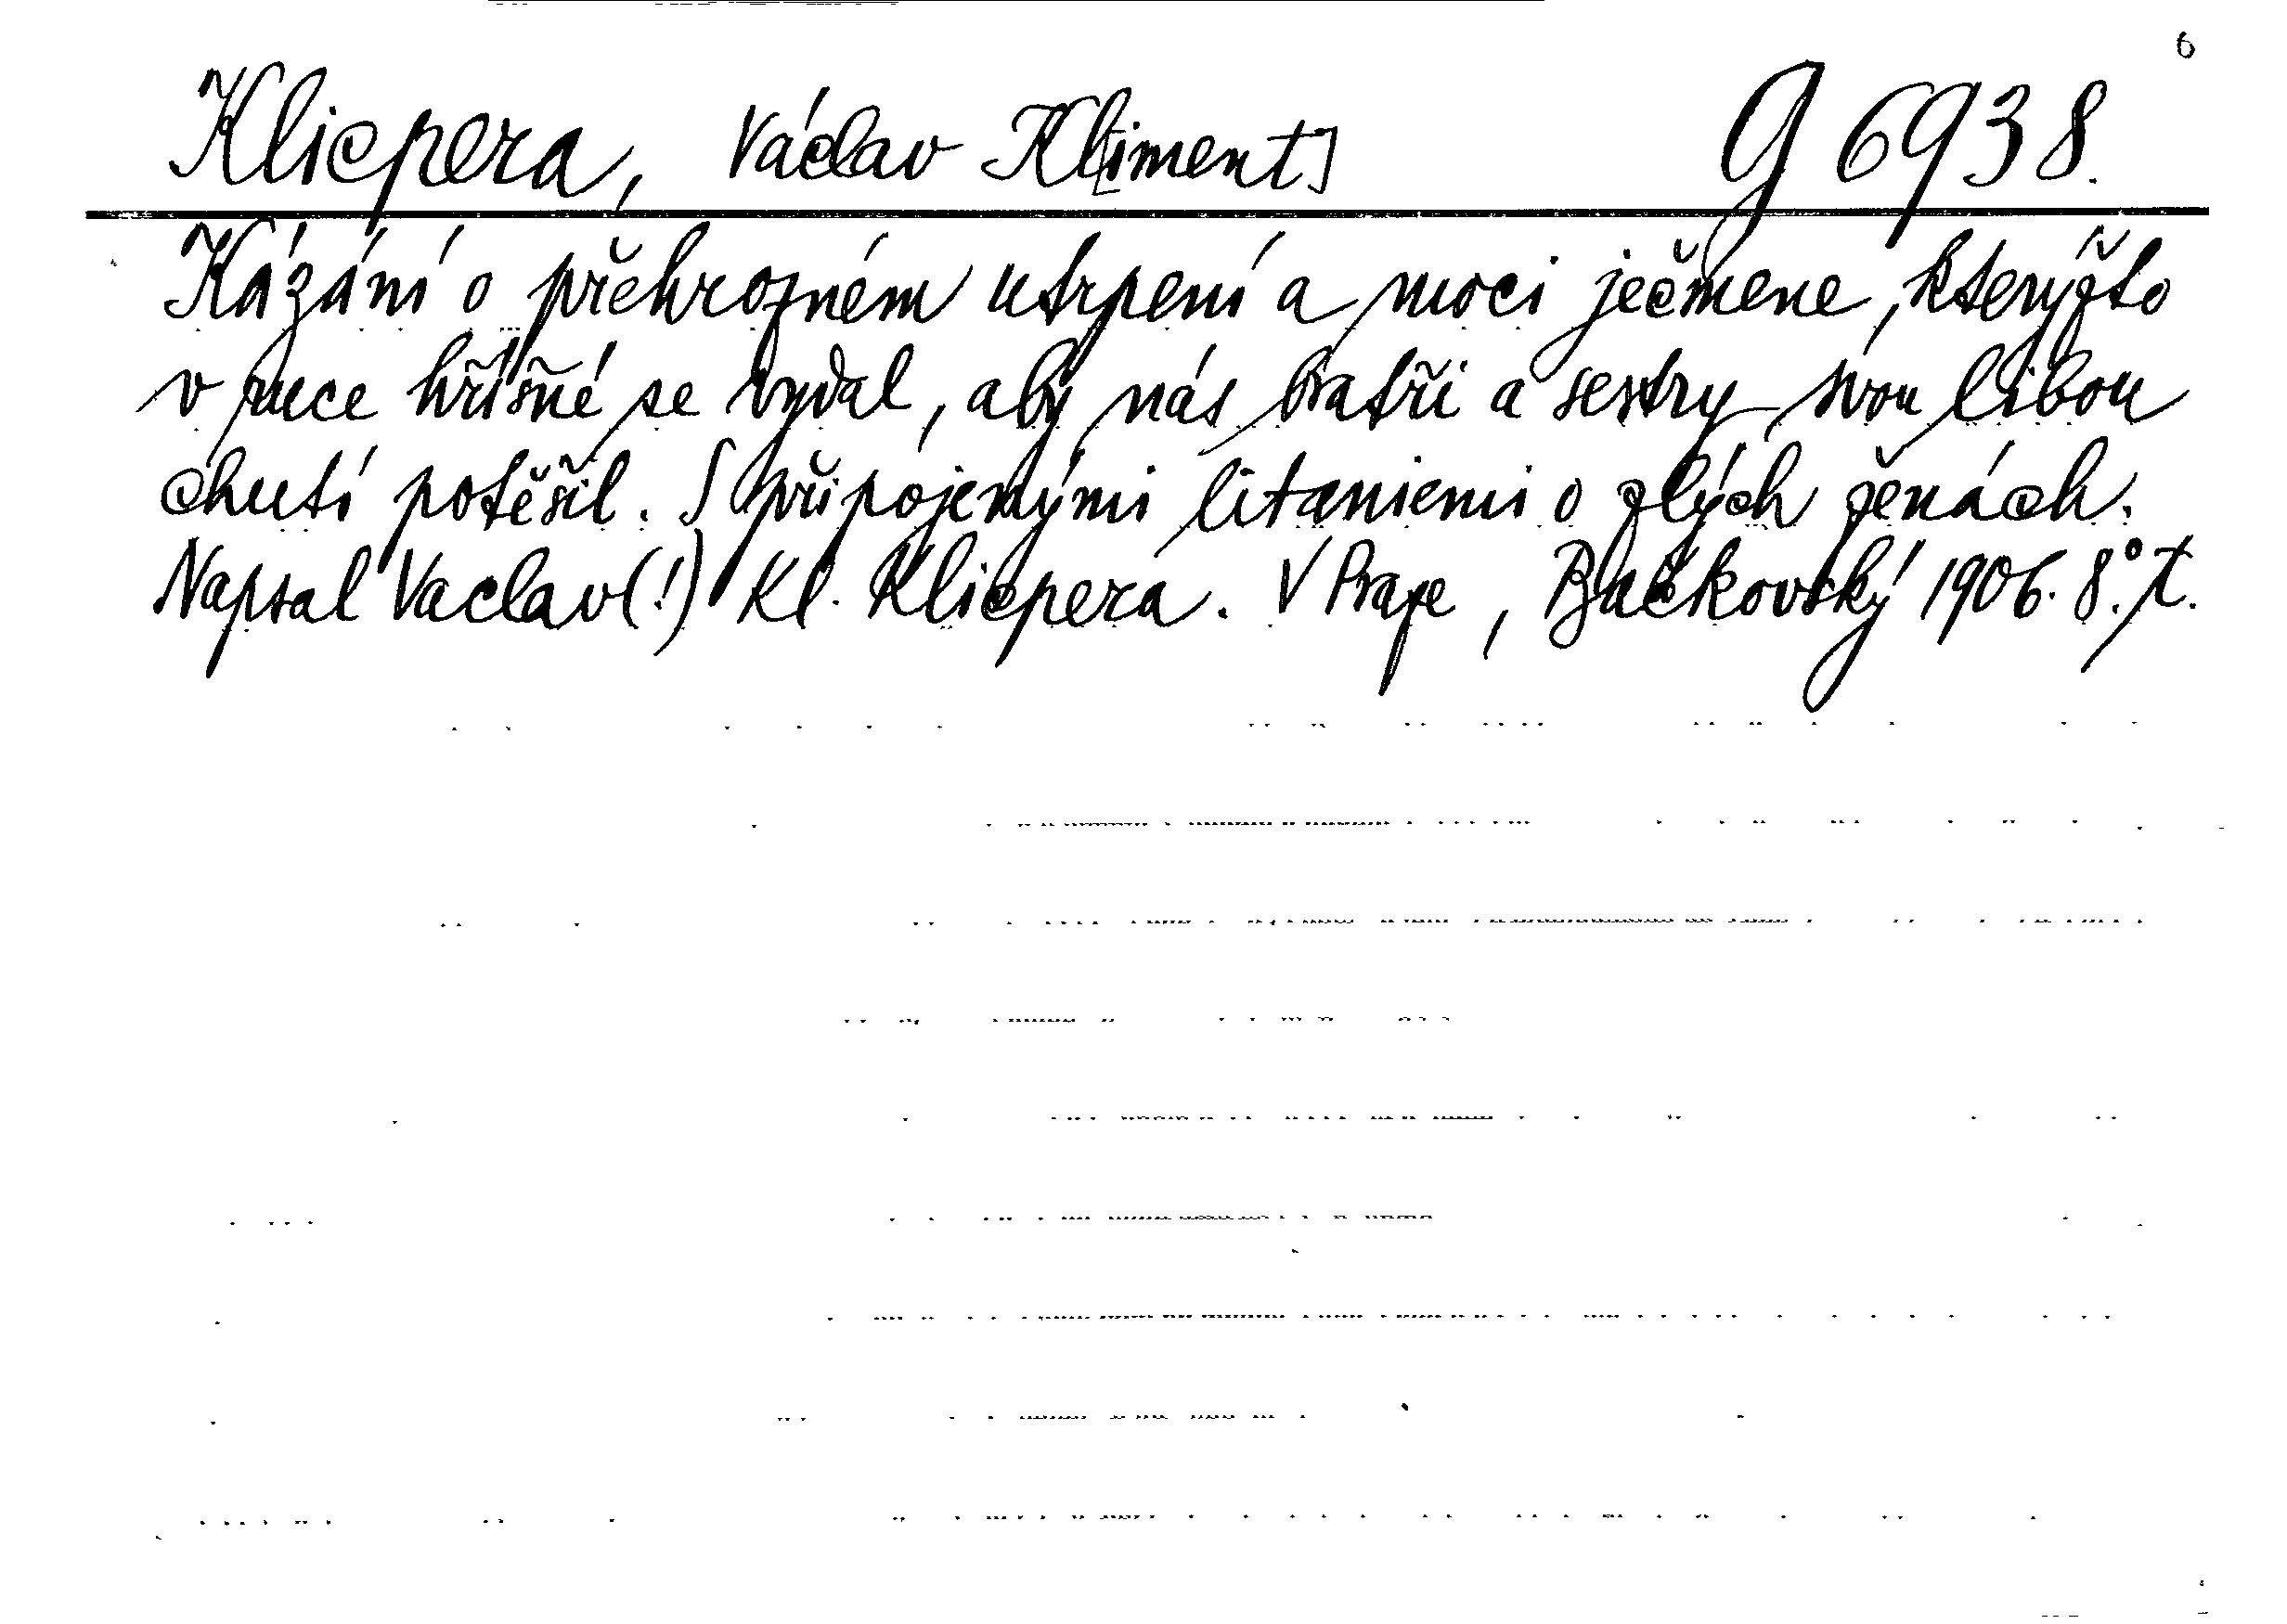 6
Klicpera, Václav Kl[iment] 9 6938.
Kázání o přehrozném utrpení a moci ječmene, kterýžto
v ruce hříšné se vydal, aby nás bratři a sestry svou libou
chutí potěšil. S připojenými litaniemi o zlých ženách.
Napsal Vaclav(!) Kl. Klicpera. V Praze, Bačkovský 1906. 8°.